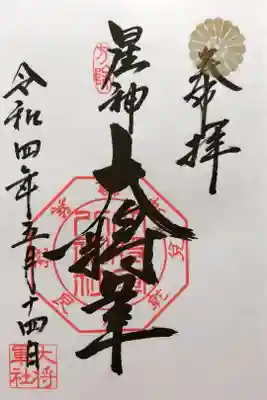 奉拝
方除
星神
大将軍
令和四年五月十四日
大将
軍社